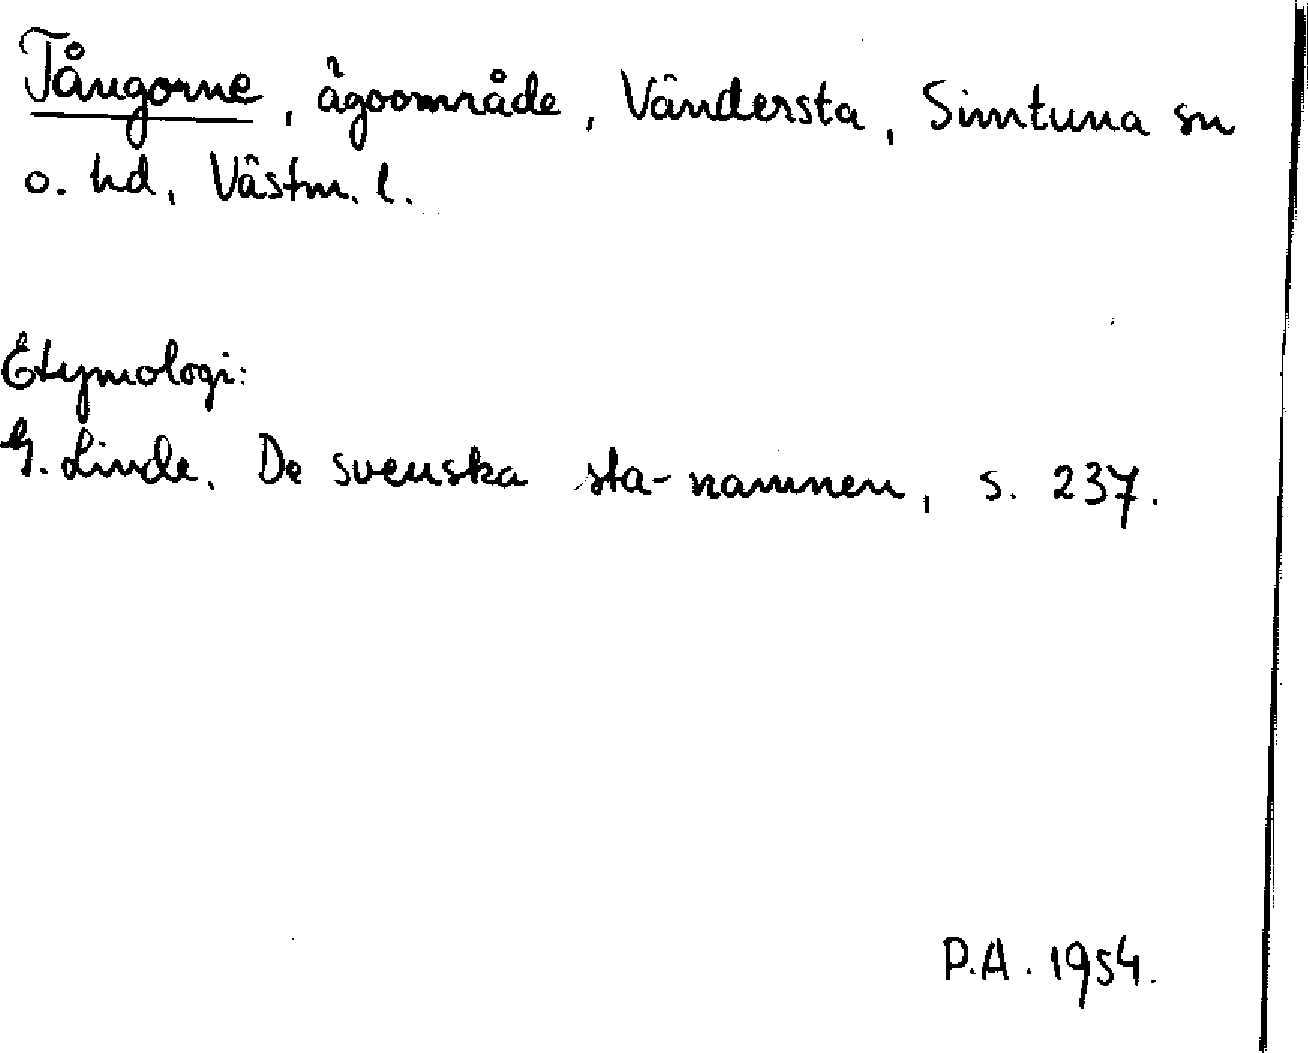 Tångorne, ägoområde, Vändersta, Simtuna sn
o. hd, Västm. l.
Etymologi:
G. Linde, De svenska sta-namnen, s. 237.
P.A. 1954.